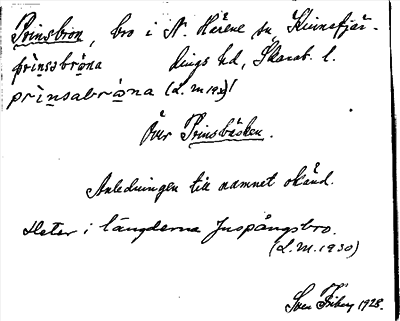 Prinsbron, bro i N. Härene sn, Kinnefjär-
prinsabròna dings hd, Skarab. l.
prìnsabròna (L.M. 1930)
Över Prinsbäcken.
Anledningen till namnet okänd.
Heter i längderna Juspångsbro.
(L.M. 1930)
Sven Friberg 1928.